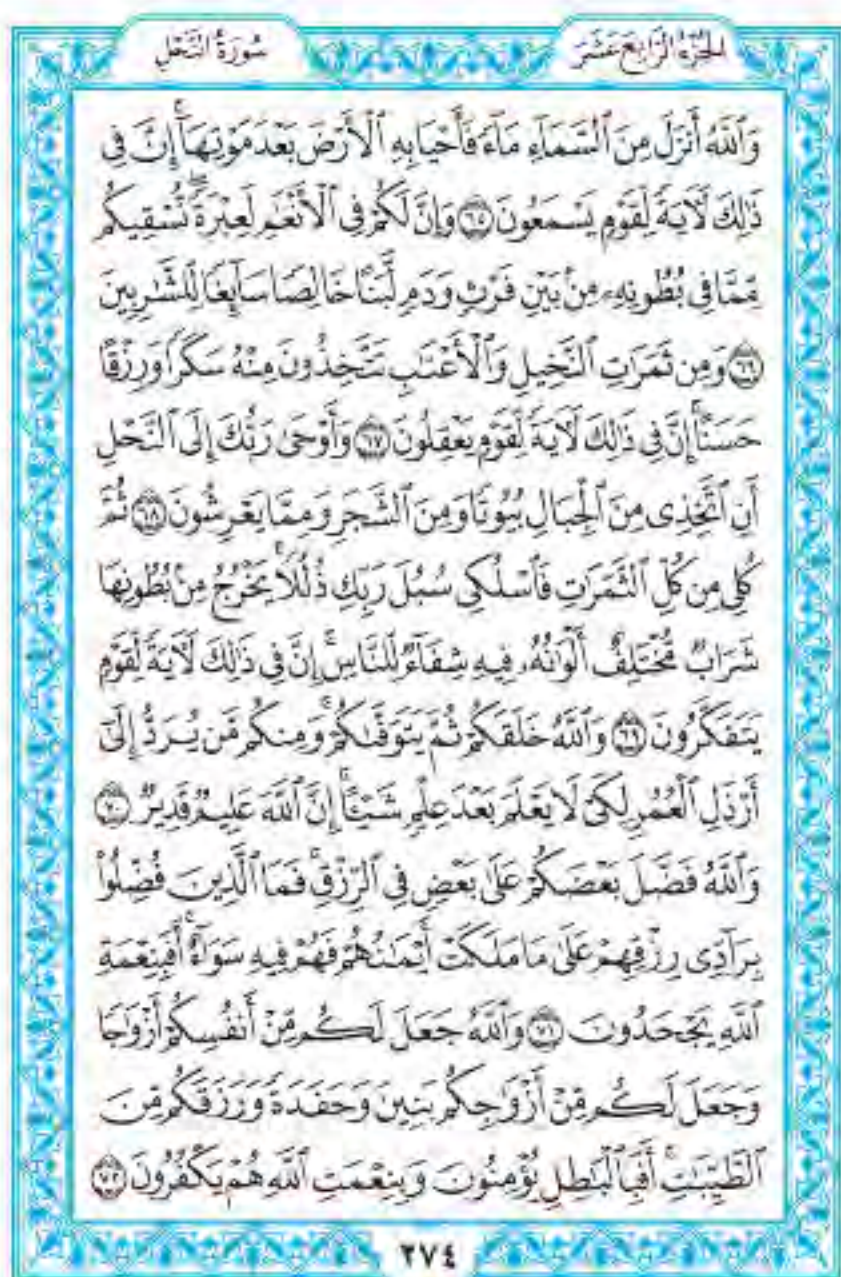 الجزء الرابع عشر
سورة النحل
وَٱللَّهُ أَنزَلَ مِنَ ٱلسَّمَآءِ مَآءً فَأَحْيَا بِهِ ٱلْأَرْضَ بَعْدَ مَوْتِهَآ ۚ إِنَّ فِى
ذَٰلِكَ لَءَايَةً لِّقَوْمٍ يَسْمَعُونَ ٦٥ وَإِنَّ لَكُمْ فِى ٱلْأَنْعَٰمِ لَعِبْرَةً ۖ نُّسْقِيكُم
مِّمَّا فِى بُطُونِهِۦ مِنۢ بَيْنِ فَرْثٍ وَدَمٍ لَّبَنًا خَالِصًا سَآئِغًا لِّلشَّٰرِبِينَ
٦٦ وَمِن ثَمَرَٰتِ ٱلنَّخِيلِ وَٱلْأَعْنَٰبِ تَتَّخِذُونَ مِنْهُ سَكَرًا وَرِزْقًا
حَسَنًا ۗ إِنَّ فِى ذَٰلِكَ لَءَايَةً لِّقَوْمٍ يَعْقِلُونَ ٦٧ وَأَوْحَىٰ رَبُّكَ إِلَى ٱلنَّحْلِ
أَنِ ٱتَّخِذِى مِنَ ٱلْجِبَالِ بُيُوتًا وَمِنَ ٱلشَّجَرِ وَمِمَّا يَعْرِشُونَ ٦٨ ثُمَّ
كُلِى مِن كُلِّ ٱلثَّمَرَٰتِ فَٱسْلُكِى سُبُلَ رَبِّكِ ذُلُلًا ۚ يَخْرُجُ مِنۢ بُطُونِهَا
شَرَابٌ مُّخْتَلِفٌ أَلْوَٰنُهُۥ فِيهِ شِفَآءٌ لِّلنَّاسِ ۗ إِنَّ فِى ذَٰلِكَ لَءَايَةً لِّقَوْمٍ
يَتَفَكَّرُونَ ٦٩ وَٱللَّهُ خَلَقَكُمْ ثُمَّ يَتَوَفَّىٰكُمْ ۚ وَمِنكُم مَّن يُرَدُّ إِلَىٰٓ
أَرْذَلِ ٱلْعُمُرِ لِكَىْ لَا يَعْلَمَ بَعْدَ عِلْمٍ شَيْـًٔا ۚ إِنَّ ٱللَّهَ عَلِيمٌ قَدِيرٌ ٧٠
وَٱللَّهُ فَضَّلَ بَعْضَكُمْ عَلَىٰ بَعْضٍ فِى ٱلرِّزْقِ ۚ فَمَا ٱلَّذِينَ فُضِّلُوا۟
بِرَآدِّى رِزْقِهِمْ عَلَىٰ مَا مَلَكَتْ أَيْمَٰنُهُمْ فَهُمْ فِيهِ سَوَآءٌ ۚ أَفَبِنِعْمَةِ
ٱللَّهِ يَجْحَدُونَ ٧١ وَٱللَّهُ جَعَلَ لَكُم مِّنْ أَنفُسِكُمْ أَزْوَٰجًا
وَجَعَلَ لَكُم مِّنْ أَزْوَٰجِكُم بَنِينَ وَحَفَدَةً وَرَزَقَكُم مِّنَ
ٱلطَّيِّبَٰتِ ۚ أَفَبِٱلْبَٰطِلِ يُؤْمِنُونَ وَبِنِعْمَتِ ٱللَّهِ هُمْ يَكْفُرُونَ ٧٢
٢٧٤